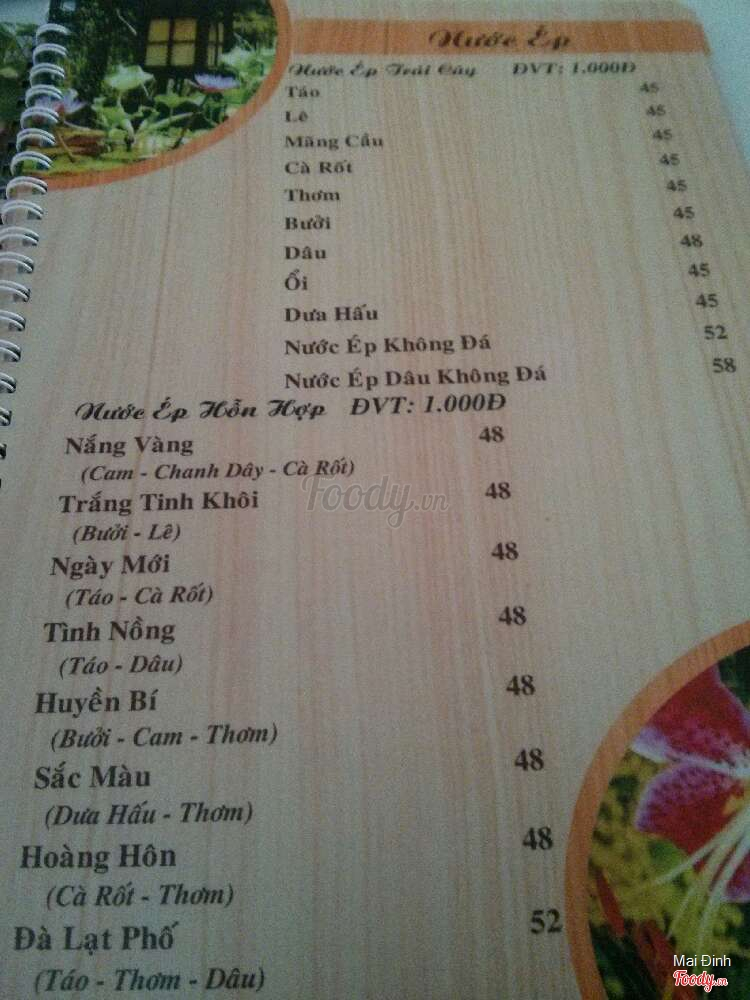 Nước Ép
Nước Ép Trái Cây ĐVT: 1.000Đ
Táo 45
Lê 45
Mãng Cầu 45
Cà Rốt 45
Thơm 45
Bưởi 45
Dâu 48
Ổi 45
Dưa Hấu 45
Nước Ép Không Đá 52
Nước Ép Dâu Không Đá 58
Nước Ép Hỗn Hợp ĐVT: 1.000Đ
Nắng Vàng 48
(Cam - Chanh Dây - Cà Rốt)
Trắng Tinh Khôi 48
(Bưởi - Lê)
Ngày Mới 48
(Táo - Cà Rốt)
Tình Nồng 48
(Táo - Dâu)
Huyền Bí 48
(Bưởi - Cam - Thơm)
Sắc Màu 48
(Dưa Hấu - Thơm)
Hoàng Hôn 48
(Cà Rốt - Thơm)
Đà Lạt Phố 52
(Táo - Thơm - Dâu)
Foody.vn
Mai Đinh
Foody.vn